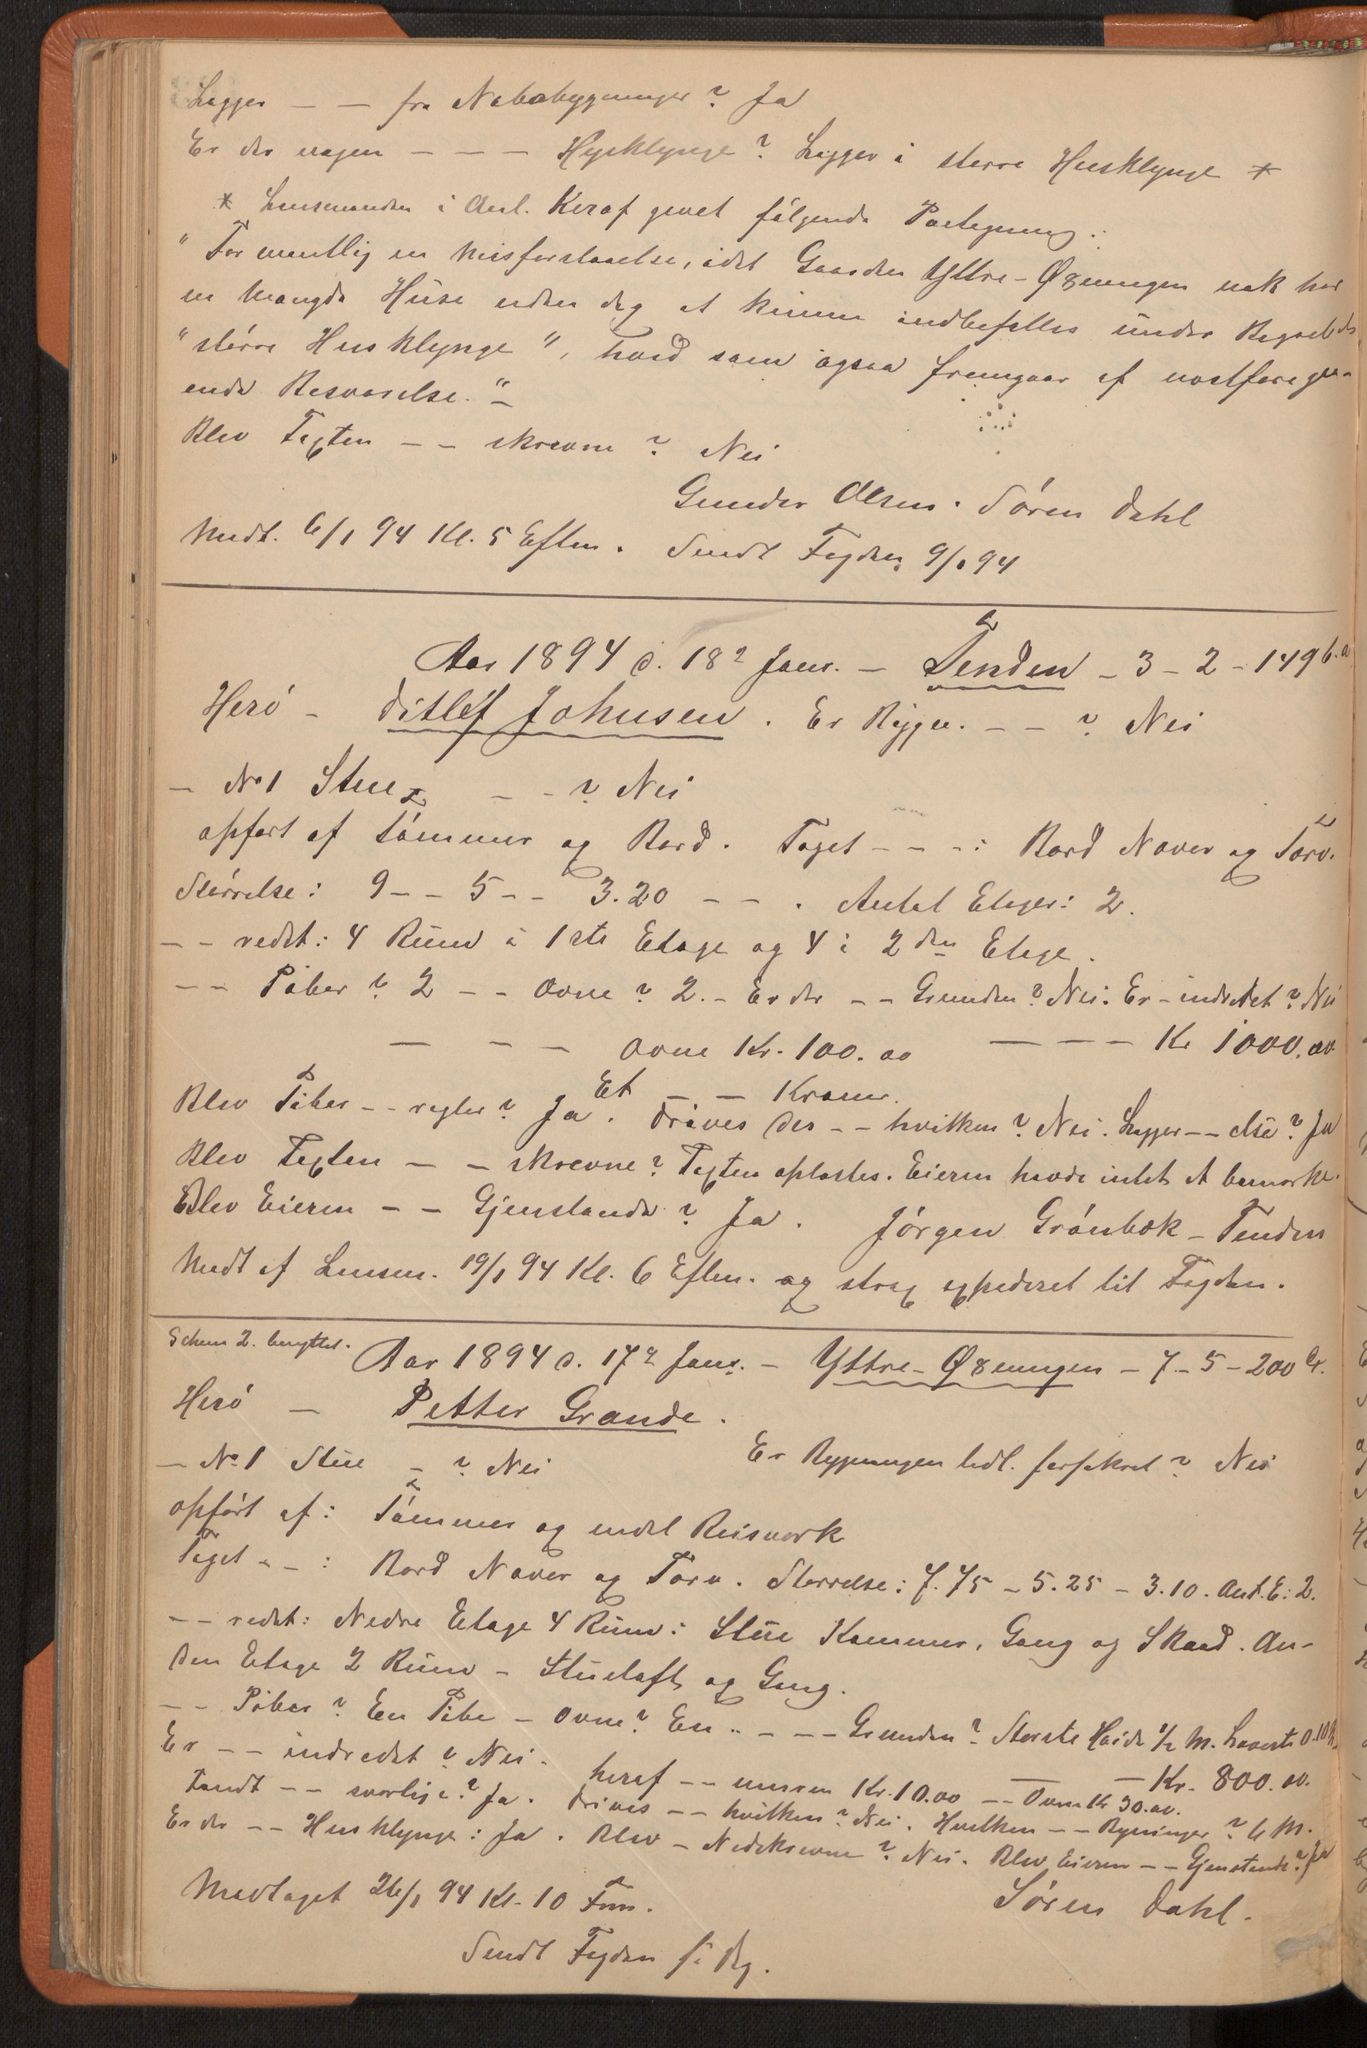 Ligger — — fra Nabobygninger? Ja
Er der nogen — — — Husklynge? Ligger i større Husklynge *
* Lensmanden i Anl. Heraf gevet følgende Paategning:
"Formentlig en Misforstaaelse, idet Gaarden Yttre-Øksningen nok har
en Mængde Huse uden dog at kunne indbefattes under Begrebet
"større Husklynge", hvad som ogsaa fremgaar af næstforegaa-
ende Besvarelse."—
Blev Taxten — — skrevne? Nei
Gunder Olsen. Søren Dahl
Modt. 6/1 94 Kl. 5 Eftm. Sendt Fogden 9/1 94
Aar 1894 d. 18? Janr. — Tenden — 3 — 2 — 1496.a
Herø — Ditlef Johnsen. Er Bygn. — — ? Nei
— No 1 Stue — — ? Nei
opført af Tømmer og Bord. Taget — — —: Bord Næver og Torv.
Størrelse: 9 — — 5 — — 3.20 — — . Antal Etager: 2.
— — redet: 4 Rum i 1ste Etage og 4 i 2den Etage.
— — Piber? 2 — — Ovne? 2. — Er der — — Grunden? Nei. Er — indredet? Nei
— — — Ovne Kr. 100.00 — — — Kr 1000.00
Et — — Kroner.
Blev Piber — — regler? Ja. Drives der — — hvilken? Nei. Ligger — — else? Ja
Blev Taxten — — skrevne? Taxten oplæstes. Eieren havde intet at bemærke.
Blev Eieren — — Gjenstande? Ja. Jørgen Grønbæk — Tenden
Modt af Lensm. 19/1 94 Kl. 6 Eftm. og strax expederet til Fogden.
Schem 2. benyttet.
Aar 1894 d. 17? Janr. — Yttre-Øksningen — 7 — 5 — 200 Cr.
Herø — Petter Grande.
— No 1 Stue — ? Nei Er Bygningen tidl. forsikret? Nei
opført af: Tømmer og endel Reisverk
Taget — —: Bord Næver og Torv. Størrelse: 7.75 — 5.25 — 3.10. Ant. E: 2.
— — redet: Nedre Etage 4 Rum: Stue Kammer, Gang og Skaad. An-
den Etage 2 Rum — Stueloft og Gang.
— — Piber? En Pibe — Ovne? En — — — Grunden? Største Høide 1/2 M. Laveste 0.10
Er — — indredet? Nei. heraf — — muren Kr. 10.00 — — Ovne Kr 30.00. — Kr. 800.00.
Fandt — — svarlige? Ja. Drives — — hvilken? Nei. Hvilken — — Bygninger? 4 M.
Er der — — Husklynge: Ja. Blev — Nedskrevne? Nei. Blev Eieren — — Gjenstande? Ja
Modtaget 26/1 94 Kl. 10 Fm. Søren Dahl.
Sendt Fogden s. Dg.